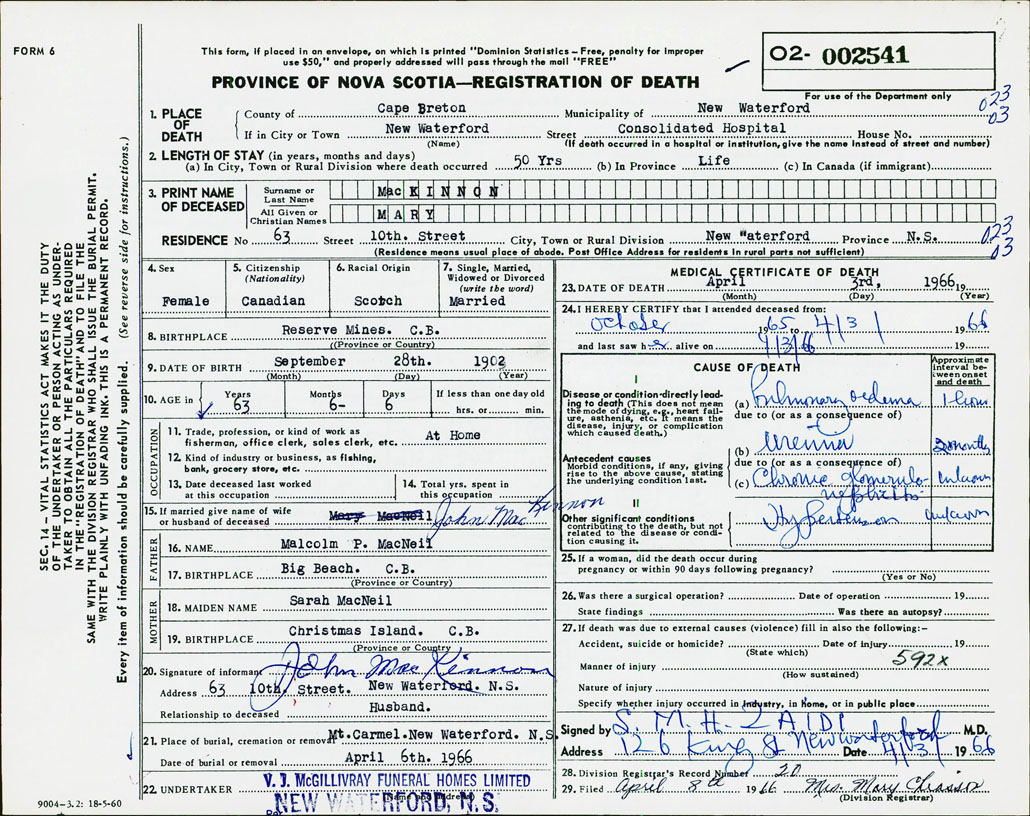 FORM 6
This form, if placed in an envelope, on which is printed "Dominion Statistics – Free, penalty for improper
use $50," and properly addressed will pass through the mail "FREE"
PROVINCE OF NOVA SCOTIA—REGISTRATION OF DEATH
O2- 002541
For use of the Department only
023
03
1. PLACE OF DEATH
County of Cape Breton Municipality of New Waterford
If in City or Town New Waterford Street Consolidated Hospital House No.
(Name) (If death occurred in a hospital or institution, give the name instead of street and number)
2. LENGTH OF STAY (in years, months and days)
(a) In City, Town or Rural Division where death occurred 50 Yrs (b) In Province Life (c) In Canada (if immigrant)
3. PRINT NAME OF DECEASED
Surname or Last Name MacKINNON
All Given or Christian Names MARY
RESIDENCE No 63 Street 10th. Street City, Town or Rural Division New Waterford Province N.S.
023
03
(Residence means usual place of abode. Post Office Address for residents in rural parts not sufficient)
4. Sex
Female
5. Citizenship
(Nationality)
Canadian
6. Racial Origin
Scotch
7. Single, Married,
Widowed or Divorced
(write the word)
Married
8. BIRTHPLACE Reserve Mines. C.B.
(Province or Country)
9. DATE OF BIRTH September 28th. 1902
(Month) (Day) (Year)
10. AGE in
Years 63
Months 6-
Days 6
If less than one day old
hrs. or min.
OCCUPATION
11. Trade, profession, or kind of work as
fisherman, office clerk, sales clerk, etc. At Home
12. Kind of industry or business, as fishing,
bank, grocery store, etc.
13. Date deceased last worked
at this occupation
14. Total yrs. spent in
this occupation
15. If married give name of wife
or husband of deceased Mary MacNeil John MacKinnon
FATHER
16. NAME Malcolm P. MacNeil
17. BIRTHPLACE Big Beach. C.B.
(Province or Country)
MOTHER
18. MAIDEN NAME Sarah MacNeil
19. BIRTHPLACE Christmas Island. C.B.
(Province or Country)
20. Signature of informant John MacKinnon
Address 63 10th. Street. New Waterford. N.S.
Relationship to deceased Husband.
21. Place of burial, cremation or removal Mt.Carmel.New Waterford. N.S.
Date of burial or removal April 6th. 1966
22. UNDERTAKER V. J. McGILLIVRAY FUNERAL HOMES LIMITED
NEW WATERFORD, N.S.
MEDICAL CERTIFICATE OF DEATH
23. DATE OF DEATH April 3rd, 1966 19
(Month) (Day) (Year)
24. I HEREBY CERTIFY that I attended deceased from:
October 1965 to 4/3/ 1966
and last saw her alive on 4/3/66 19
CAUSE OF DEATH
Approximate interval between onset and death
I
Disease or condition directly leading to death (This does not mean the mode of dying, e.g., heart failure, asthenia, etc. It means the disease, injury, or complication which caused death.)
(a) Pulmonary oedema 1 hour
due to (or as a consequence of)
Antecedent causes
Morbid conditions, if any, giving rise to the above cause, stating the underlying condition last.
(b) Uremia 2 months
due to (or as a consequence of)
(c) Chronic glomerulo-
nephritis unknown
II
Other significant conditions
contributing to the death, but not related to the disease or condition causing it.
Hypertension unknown
25. If a woman, did the death occur during
pregnancy or within 90 days following pregnancy?
(Yes or No)
26. Was there a surgical operation? Date of operation 19
State findings Was there an autopsy?
27. If death was due to external causes (violence) fill in also the following:–
Accident, suicide or homicide? Date of injury 19
(State which)
592x
Manner of injury
(How sustained)
Nature of injury
Specify whether injury occurred in Industry, in Home, or in public place
Signed by S. M. H. ZAIDI M.D.
Address 126 King St New waterford Date 4/3/ 1966
28. Division Registrar's Record Number 20
29. Filed April 8th 1966 Mrs. Mary Chiasson
(Division Registrar)
SEC. 14 – VITAL STATISTICS ACT MAKES IT THE DUTY
OF THE UNDERTAKER OR PERSON ACTING AS UNDER-
TAKER TO OBTAIN ALL THE PARTICULARS REQUIRED
IN THE "REGISTRATION OF DEATH" AND TO FILE THE
SAME WITH THE DIVISION REGISTRAR WHO SHALL ISSUE THE BURIAL PERMIT.
WRITE PLAINLY WITH UNFADING INK. THIS IS A PERMANENT RECORD.
Every item of information should be carefully supplied. (See reverse side for instructions.)
9004–3.2: 18-5-60